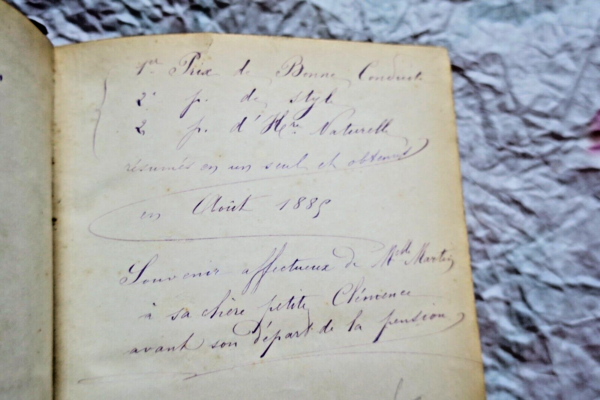 1er Prix de Bonne Conduite
2e p. de style
2 p. d'Hre Naturelle
résumés en un seul et obtenus
en Août 1889
Souvenir affectueux de Melle Martin
à sa chère petite Clémence
avant son départ de la pension